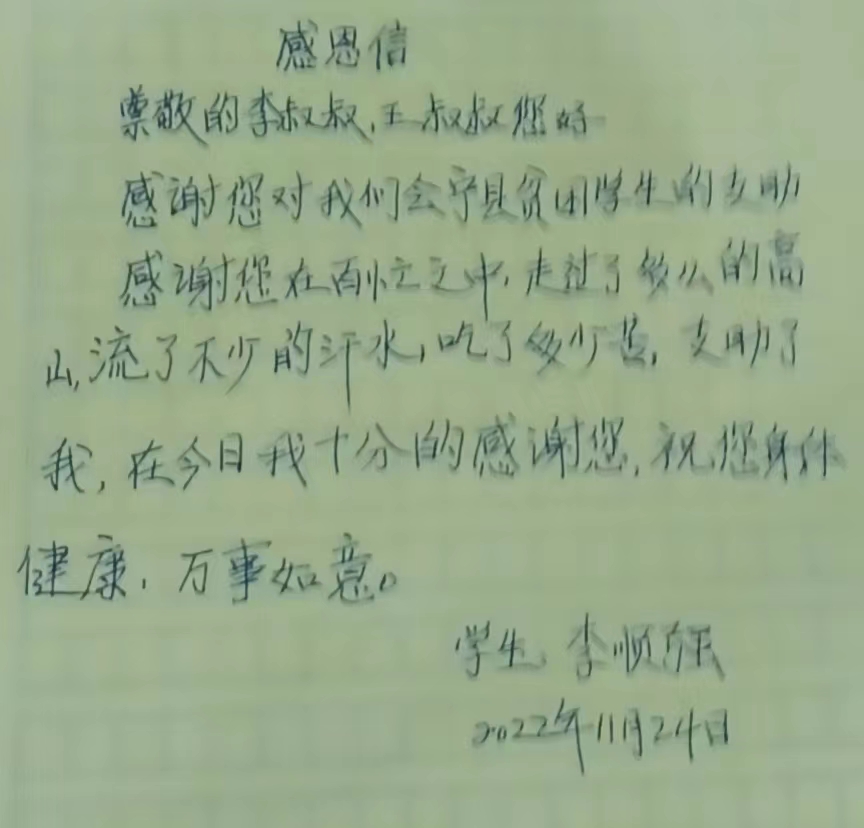 感恩信
尊敬的李叔叔,王叔叔您好
感谢您对我们会宁县贫困学生的支助
感谢您在百忙之中,走过了多么的高
山,流了不少的汗水,吃了多少苦,支助了
我,在今日我十分的感谢您,祝您身体
健康,万事如意。
学生 李顺
2022年11月24日